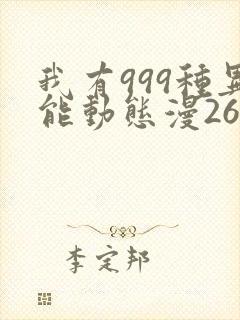 我有999種異
能動態漫26
李定邦